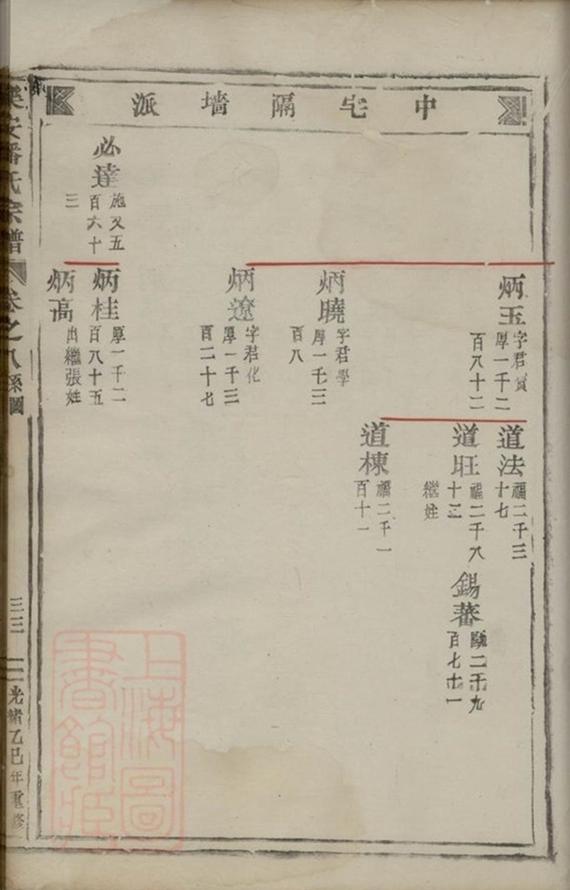 中宅隔墙派
必達
施又五
百六十
三
炳玉
字君賓
厚一千二
百八十二
炳曉
字君學
厚一千三
百八
炳遼
字君化
厚一千三
百二十七
炳桂
厚一千二
百八十五
炳高
出繼張姓
道法
福二千三
十七
道旺
福二千八
十三
繼姓
道棟
福二千一
百十一
錫蕃
二千九
百七十一
安潘氏宗譜
卷之八
系圖
三三
光緒乙巳年重修
上海圖
書館藏